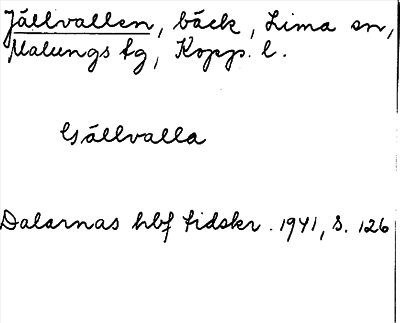 Jällvallen, bäck, Lima sn,
Malungs tg, Kopp. l.
Gällvalla
Dalarnas hbf tidskr. 1941, s. 126